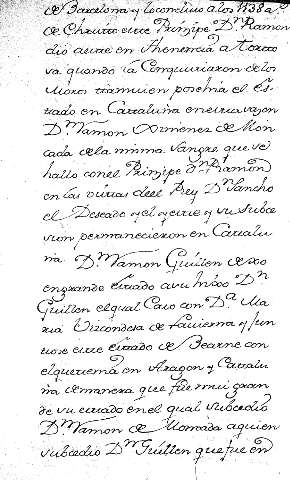 de Barcelona y lo conclusio a los 1138 a.s
de Christo este Prinsipe D.n Ramon
dio a este en Thenencia a Torto
va quando la Conquistaron de los
Moros tramuien poschia el es
tado en Cattaluña en esta razon
D.n Ramon Ximenez de Mon
cada de la misma Sangre que se
hallo con el Prinsipe D.n Ramon
en las vistas de el Rey D.n Sancho
el Deseado y el y este y su Subce
sion permanecieron en Cattalu
ña. D.n Ramon Guillen dexo
en grande estado a su hixo D.n
Guillen el qual Caso con D.a Ma
ria Vizcondesa de Lavierna y Jun
tose este estado de Bearne con
el que tenia en Aragon y Cattalu
ña de manera que fue mui gran
de su estado en el qual Subcedio
D.n Ramon de Moncada a quien
Subcedio D.n Guillen que fue en